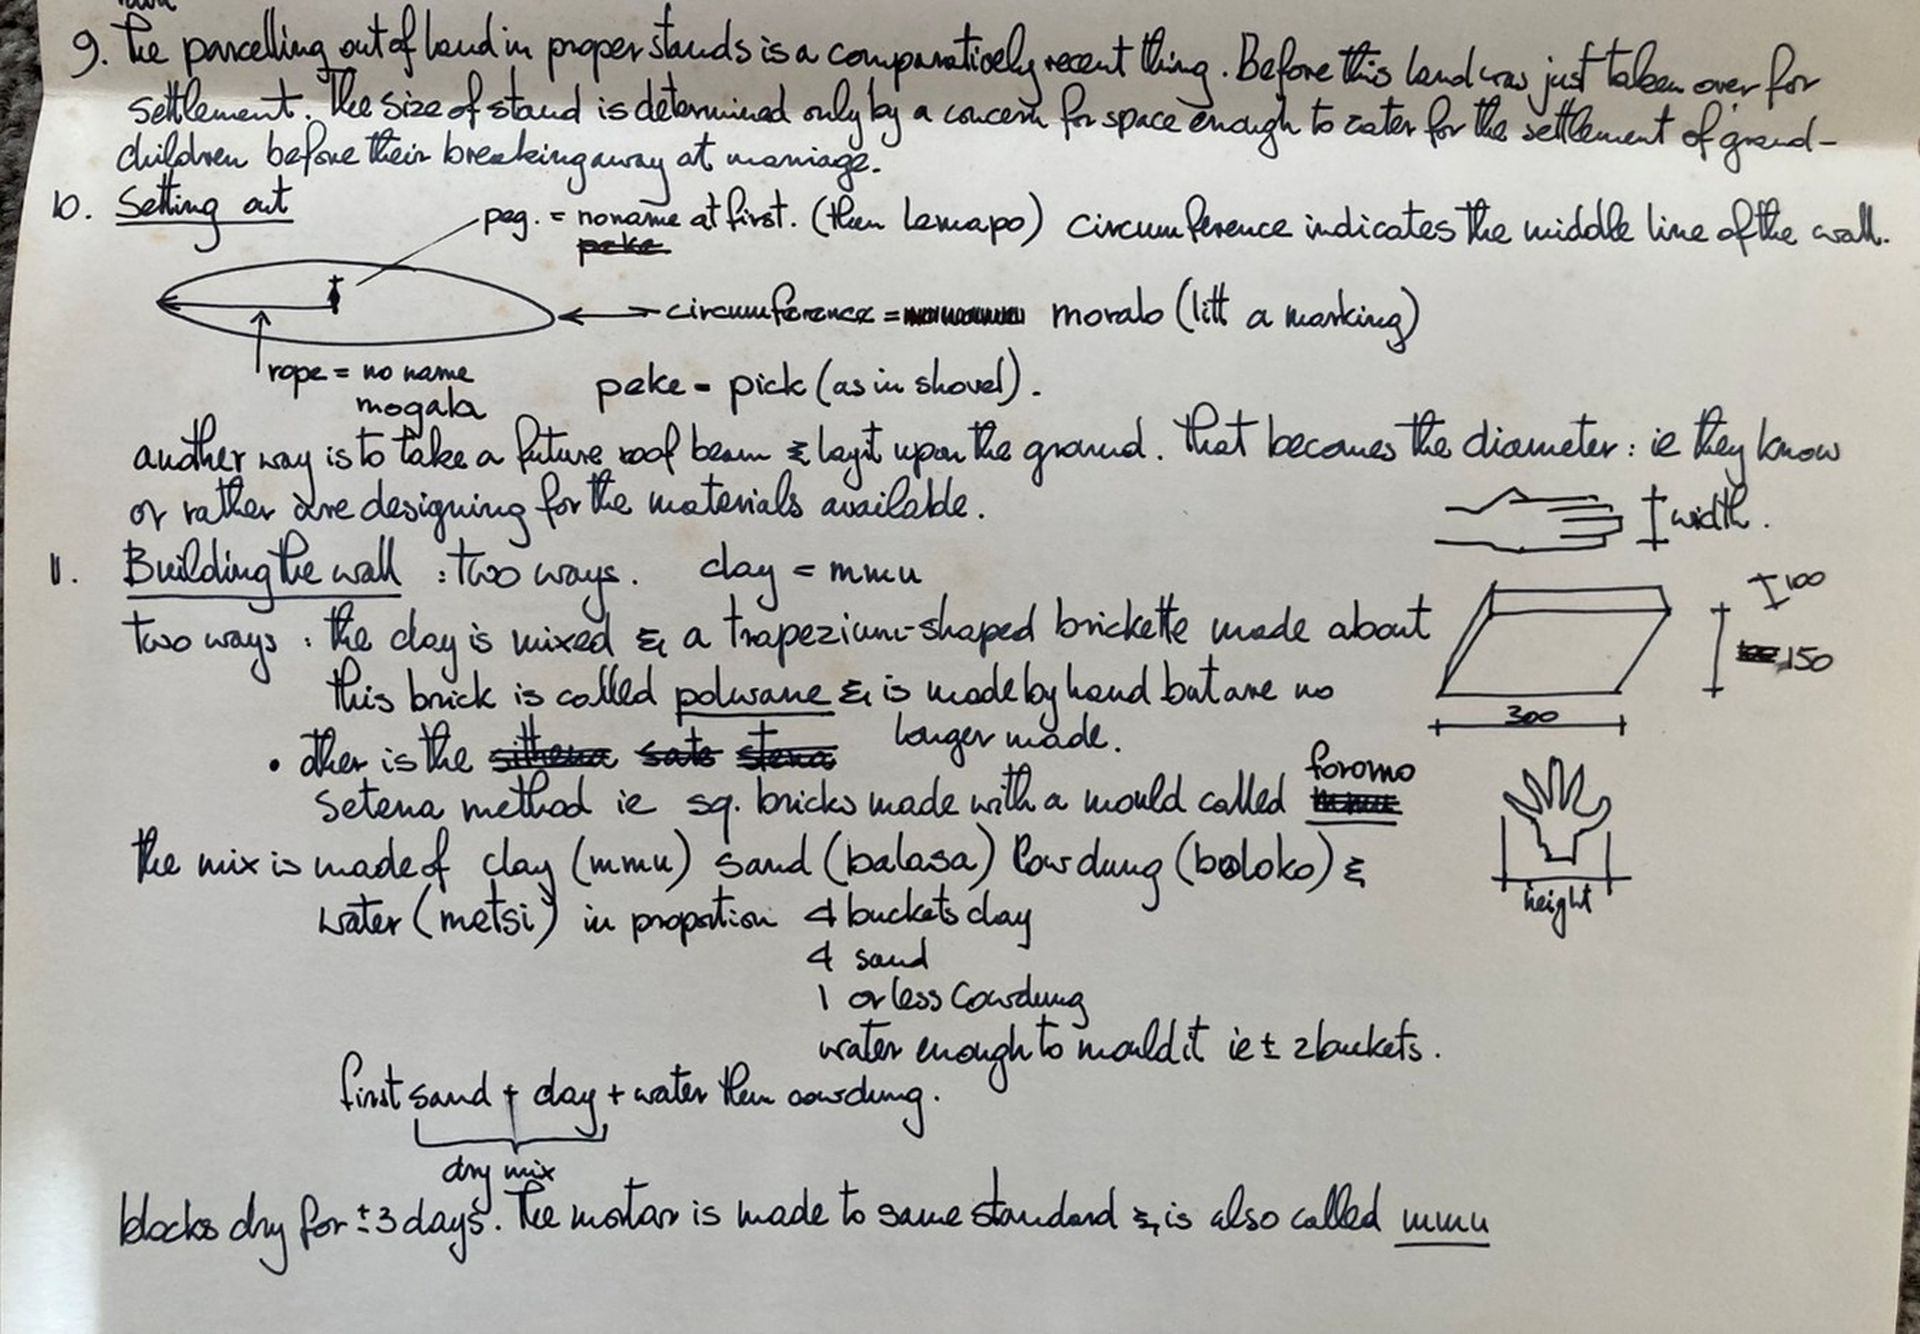 9. The parcelling out of land in proper stands is a comparatively recent thing. Before this land was just taken over for
settlement. The size of stand is determined only by a concern for space enough to cater for the settlement of grand-
children before their breaking away at marriage.
10. Setting out
peg. = no name at first. (then Lemapo) circumference indicates the middle line of the wall.
peke
circumference = moralo (litt a marking)
rope = no name
mogala
peke = pick (as in shovel).
another way is to take a future roof beam & lay it upon the ground. That becomes the diameter: ie they know
or rather are designing for the materials available.
width.
11. Building the wall : two ways. clay = mmu
100
two ways : the clay is mixed & a trapezium-shaped brickette made about
150
this brick is called polwane & is made by hand but are no
longer made.
300
• other is the sithena sate stena
foromo
setena method ie sq. bricks made with a mould called
the mix is made of clay (mmu) sand (balasa) Cowdung (boloko) &
height
water (metsi) in proportion 4 buckets clay
4 sand
1 or less Cowdung
water enough to mould it ie ± 2 buckets.
first sand + clay + water then cowdung.
dry mix
blocks dry for ±3 days. The mortar is made to same standard & is also called mmu